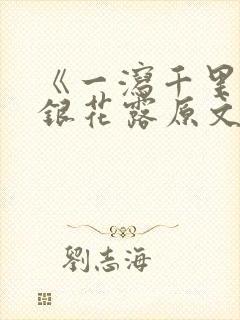 《一瀉千里
銀花露原文
劉志海